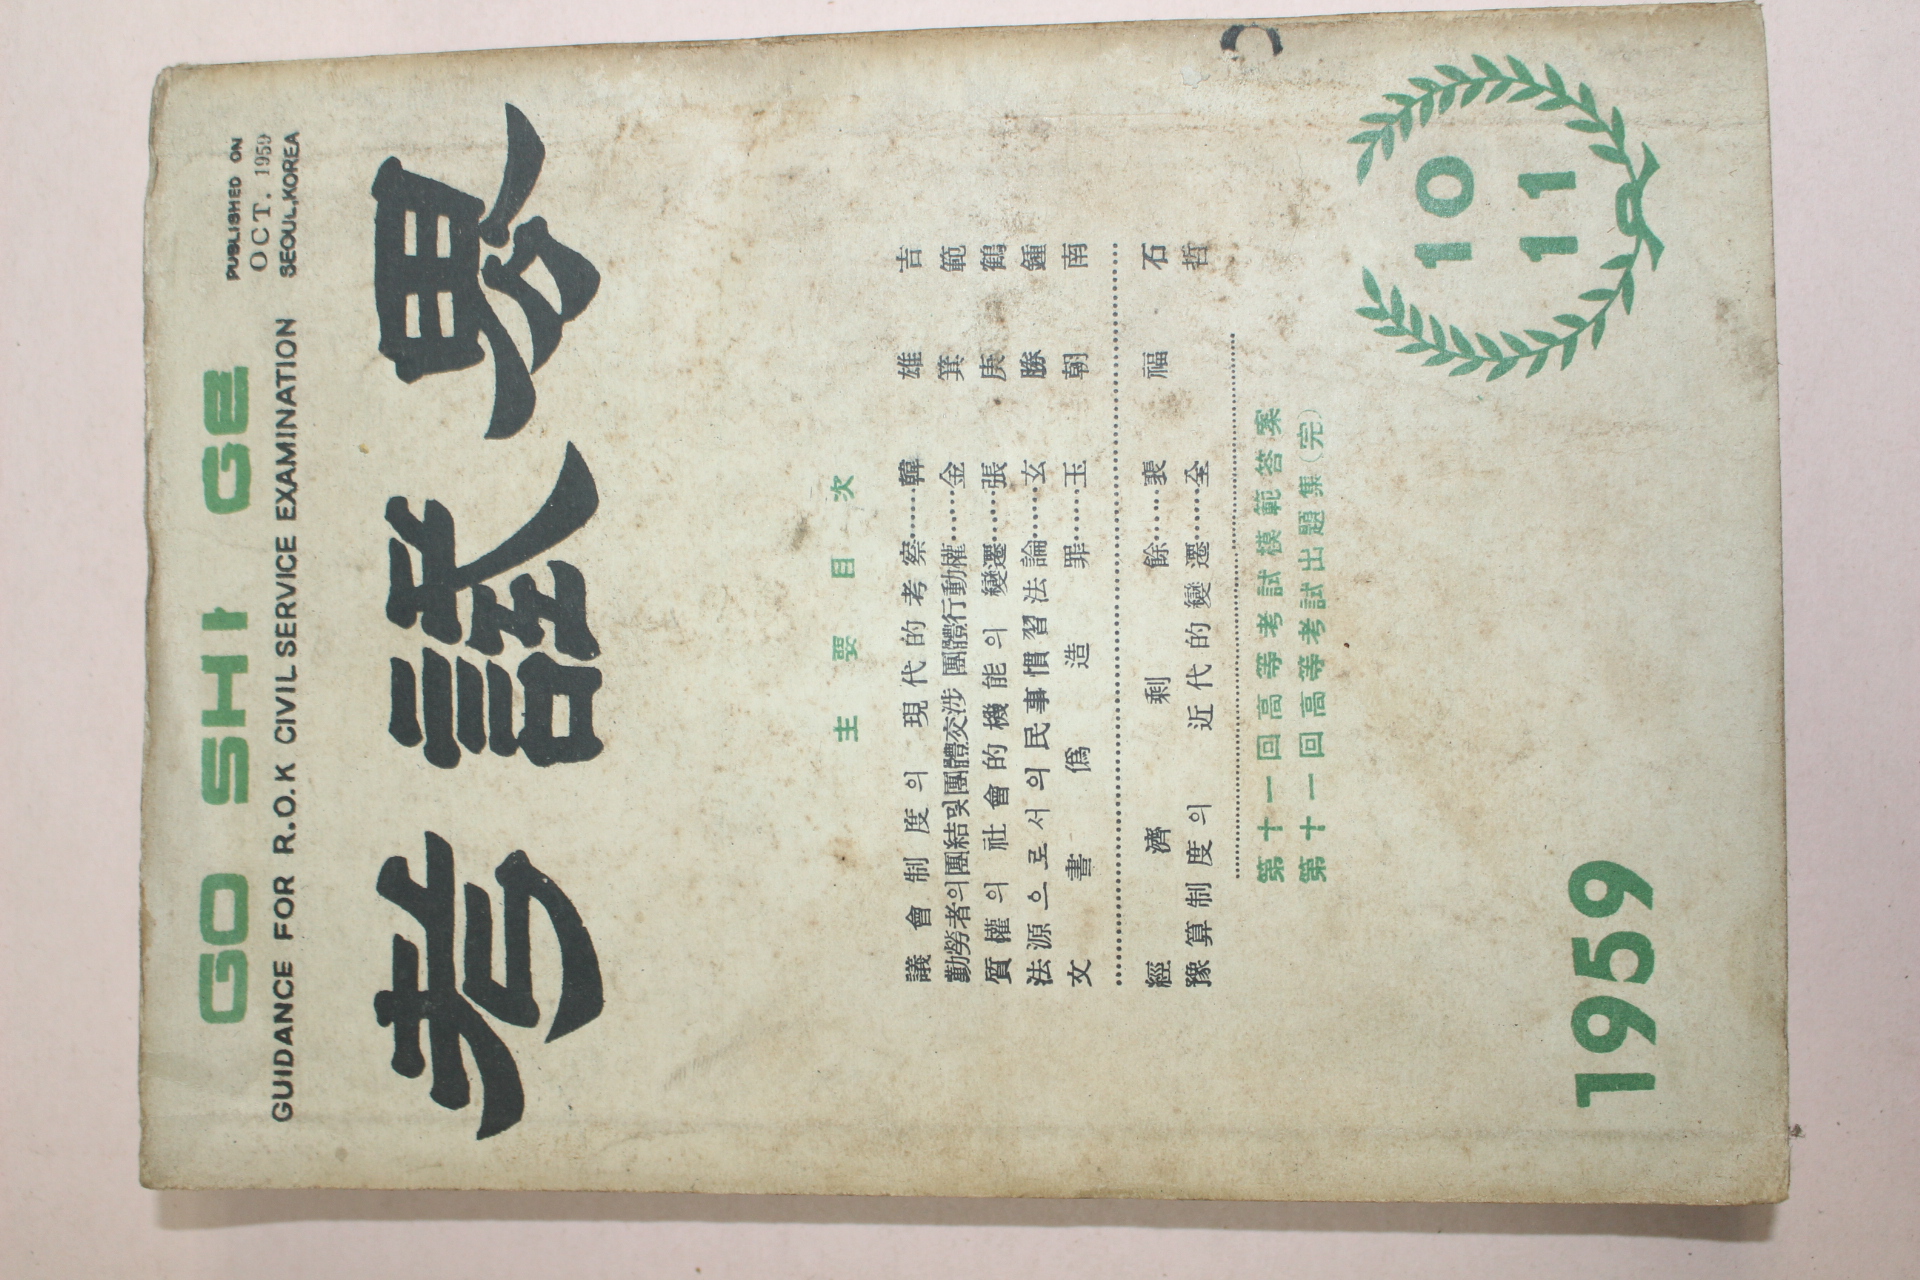 GO SHI GE
GUIDANCE FOR R.O.K CIVIL SERVICE EXAMINATION
PUBLISHED ON
OCT. 1959
SEOUL,KOREA
考試界
主要目次
議會制度의 現代的考察……韓雄吉
勤勞者의團結및團體交涉 團體行動權……金箕範
質權의 社會的機能의 變遷……張庚鶴
法源으로서의民事慣習法論……玄勝鍾
文書僞造罪……玉朝南
經濟剩餘……裵福石
豫算制度의 近代的變遷……全哲
第十一回高等考試模範答案
第十一回高等考試出題集(完)
1959
10
11